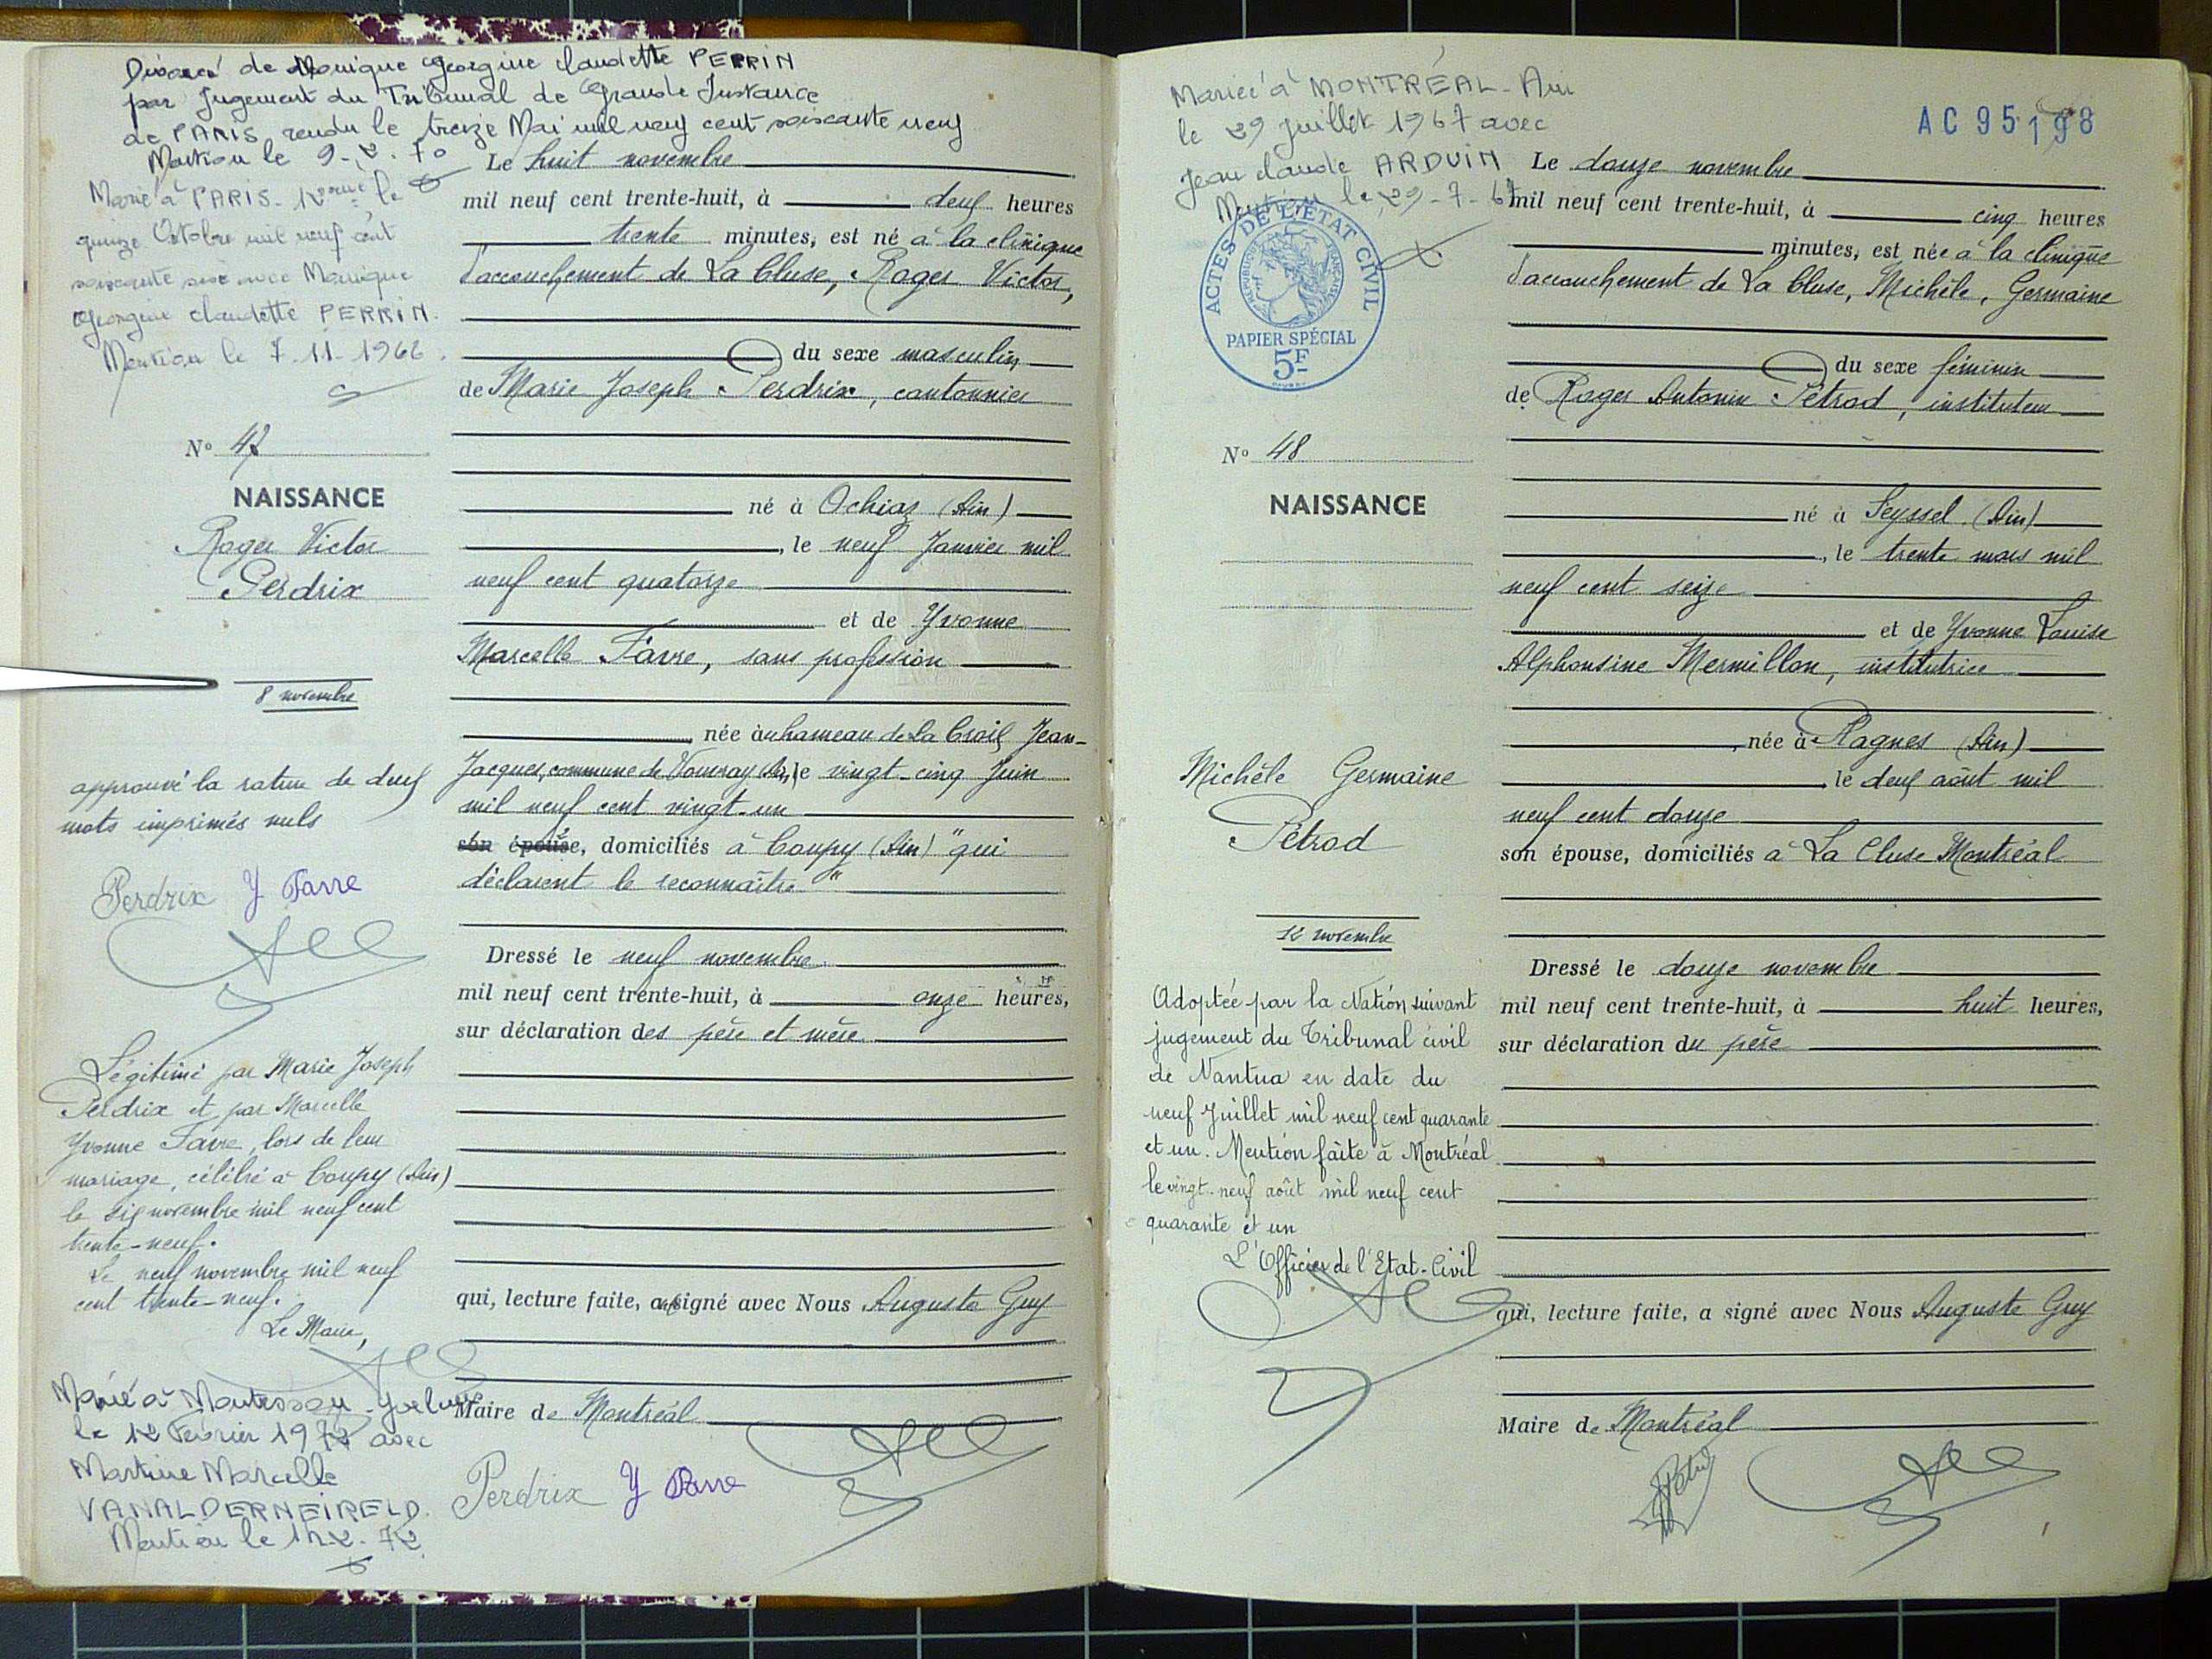 Divorcé de Monique Georgine Claudette PERRIN
par Jugement du Tribunal de Grande Instance
de PARIS rendu le treize Mai mil neuf cent soixante neuf
Mention le 9-2-70
Marié à PARIS - le
quinze Octobre mil neuf cent
soixante six avec Monique
Georgine Claudette PERRIN.
Mention le 7-11-1966.
N° 47
NAISSANCE
Roger Victor
Perdrix
8 novembre
approuvé la rature de deux
mots imprimés nuls
Perdrix Y Favre
Légitimé par Marie Joseph
Perdrix et par Marcelle
Yvonne Favre, lors de leur
mariage, célébré à Coupy (Ain)
le six novembre mil neuf cent
trente-neuf.
Le neuf novembre mil neuf
cent trente-neuf.
Le Maire,
Marié à Montesson - Yvelines
le 12 Février 1972 avec
Martine Marcelle
VANALDERNEIRELD.
Mention le 72
Le huit novembre
mil neuf cent trente-huit, à deux heures
trente minutes, est né à la clinique
d'accouchement de La Cluse, Roger Victor,
du sexe masculin
de Marie Joseph Perdrix, cantonnier
né à Ochiaz (Ain)
, le neuf Janvier mil
neuf cent quatorze
et de Yvonne
Marcelle Favre, sans profession
née au hameau de La Croix Jean-
Jacques, commune de Vouvray (Ain), le vingt-cinq Juin
mil neuf cent vingt-un
son épouse, domiciliés à Coupy (Ain) "qui
déclarent le reconnaître"
Dressé le neuf novembre
mil neuf cent trente-huit, à onze heures,
sur déclaration des père et mère
qui, lecture faite, ont signé avec Nous Auguste Guy
Maire de Montréal
Perdrix Y Favre
Mariée à MONTRÉAL - Ain
le 29 juillet 1967 avec
Jean Claude ARDUIN
Mention le 29-7-67
AC 95 198
ACTES DE L'ÉTAT CIVIL
RÉPUBLIQUE FRANÇAISE
PAPIER SPÉCIAL
5F
N° 48
NAISSANCE
Michèle Germaine
Pétrod
12 novembre
Adoptée par la Nation suivant
jugement du Tribunal civil
de Nantua en date du
neuf Juillet mil neuf cent quarante
et un. Mention faite à Montréal
le vingt-neuf août mil neuf cent
quarante et un
L'Officier de l'Etat-Civil
Le douze novembre
mil neuf cent trente-huit, à cinq heures
minutes, est née à la clinique
d'accouchement de La Cluse, Michèle, Germaine
du sexe féminin
de Roger Antonin Pétrod, instituteur
né à Seyssel (Ain)
, le trente mars mil
neuf cent seize
et de Yvonne Louise
Alphonsine Mermillon, institutrice
, née à Plagnes (Ain)
le deux août mil
neuf cent douze
son épouse, domiciliés à La Cluse Montréal
Dressé le douze novembre
mil neuf cent trente-huit, à huit heures,
sur déclaration du père
qui, lecture faite, a signé avec Nous Auguste Guy
Maire de Montréal